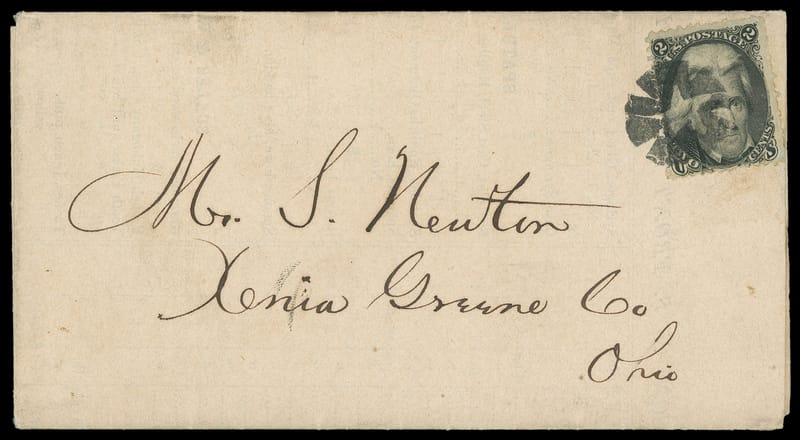 2 U.S. POSTAGE 2
CENTS
Mr. S. Newton
Xenia Greene Co
Ohio